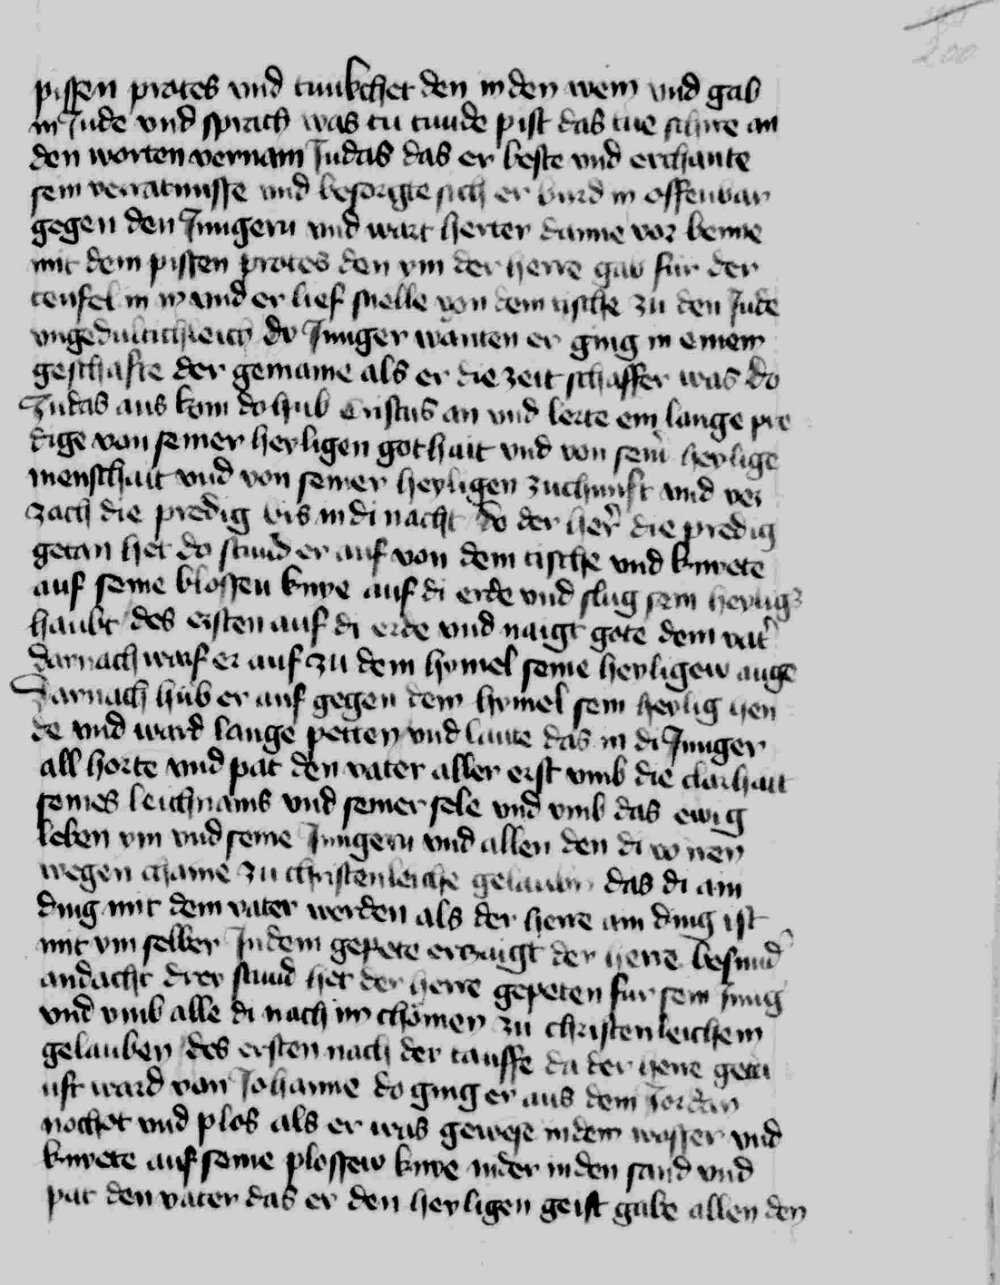 pissen protes vnd tunkchet den in den wein vnd gab
in Jude vnd sprach was tu tunde pist das tue schire an
den worten vernam Judas das er beste vnd erchante
sein verratnusse vnd besorgte sich er burd in offenbar
gegen den Jungern vnd wart herter danne vor benne
mit dem pissen protes den ym der herre gab fur der
teufel in in vnd er lief snelle von dem tische zu den Jude
vngedultichleich do Junger wanten er ging in einem
geschafte der gemaine als er die zeit schaffer was do
Judas aus kom do hub Cristus an vnd lerte ein lange pre
dige von seiner heyligen gothait vnd von sein̄ heylige
menschait vnd von seiner heyligen zuchunft vnd ver
zach die predig bis in di nacht do der her̄ die predig
getan het do stund er auf von dem tische vnd knyete
auf seine blossen knye auf di erde vnd slug sein heylig
haubt des ersten auf di erde vnd naigt gote dem vat̄
darnach warf er auf zu dem hymel seine heyligew auge
Darnach hub er auf gegen dem hymel sein heylig hen
de vnd ward lange petten vnd laute das in di Junger
all horte vnd pat den vater aller erst vmb die clarhait
seines leichnams vnd seiner sele vnd vmb das ewig
leben ym vnd seine Jungern vnd allen den di vo iren
wegen chame zu christenleiche gelauben das di ain
ding mit dem vater werden als der herre ain ding ist
mit ym selber In dem gepete erzaigt der herre besund̄
andacht drey stund het der herre gepeten fur sein Jung
vnd vmb alle di nach in chomen zu christenleichem
gelauben des ersten nach der tauffe da der herre geta
uft ward von Johanne do ging er aus dem Jordan
nochet vnd plos als er was gewese in dem wasser vnd
knyete auf seine plossew knye nider in den sand vnd
pat den vater das er den heyligen geist gabe allen den